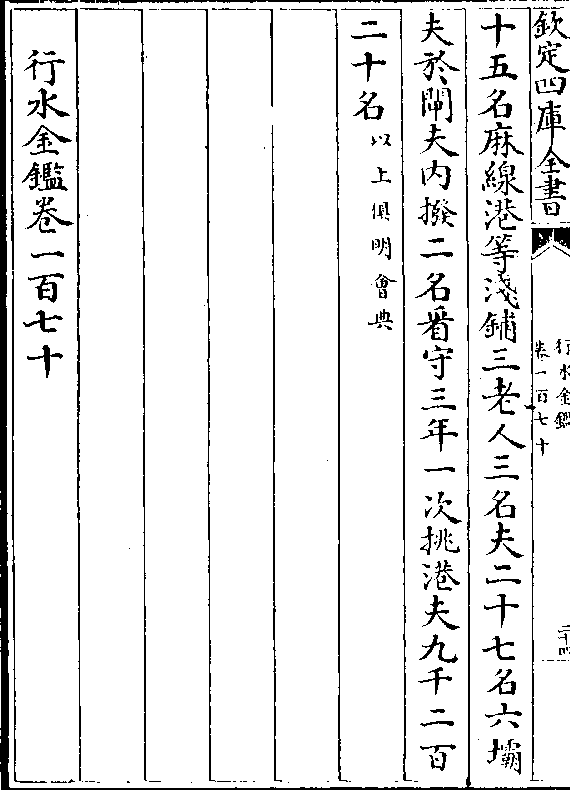 欽定四庫全書
行水金鑑
卷一百七十
二十四
十五名麻線港等淺鋪三老人三名夫二十七名六壩
夫於閘夫内撥二名看守三年一次挑港夫九千二百
二十名以上俱明會典
行水金鑑卷一百七十